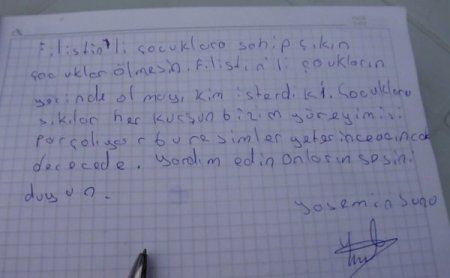 Filistin'li çocuklara sahip çıkın
çocuklar ölmesin. Filistin'li çocukların
yerinde olmayı kim isterdi ki. Çocuklara
sıkılan her kurşun bizim yüreyimizi
parçalıyor bu resimler yeterince acıncak
derecede. Yardım edin onların sesini
duyun.
Yasemin